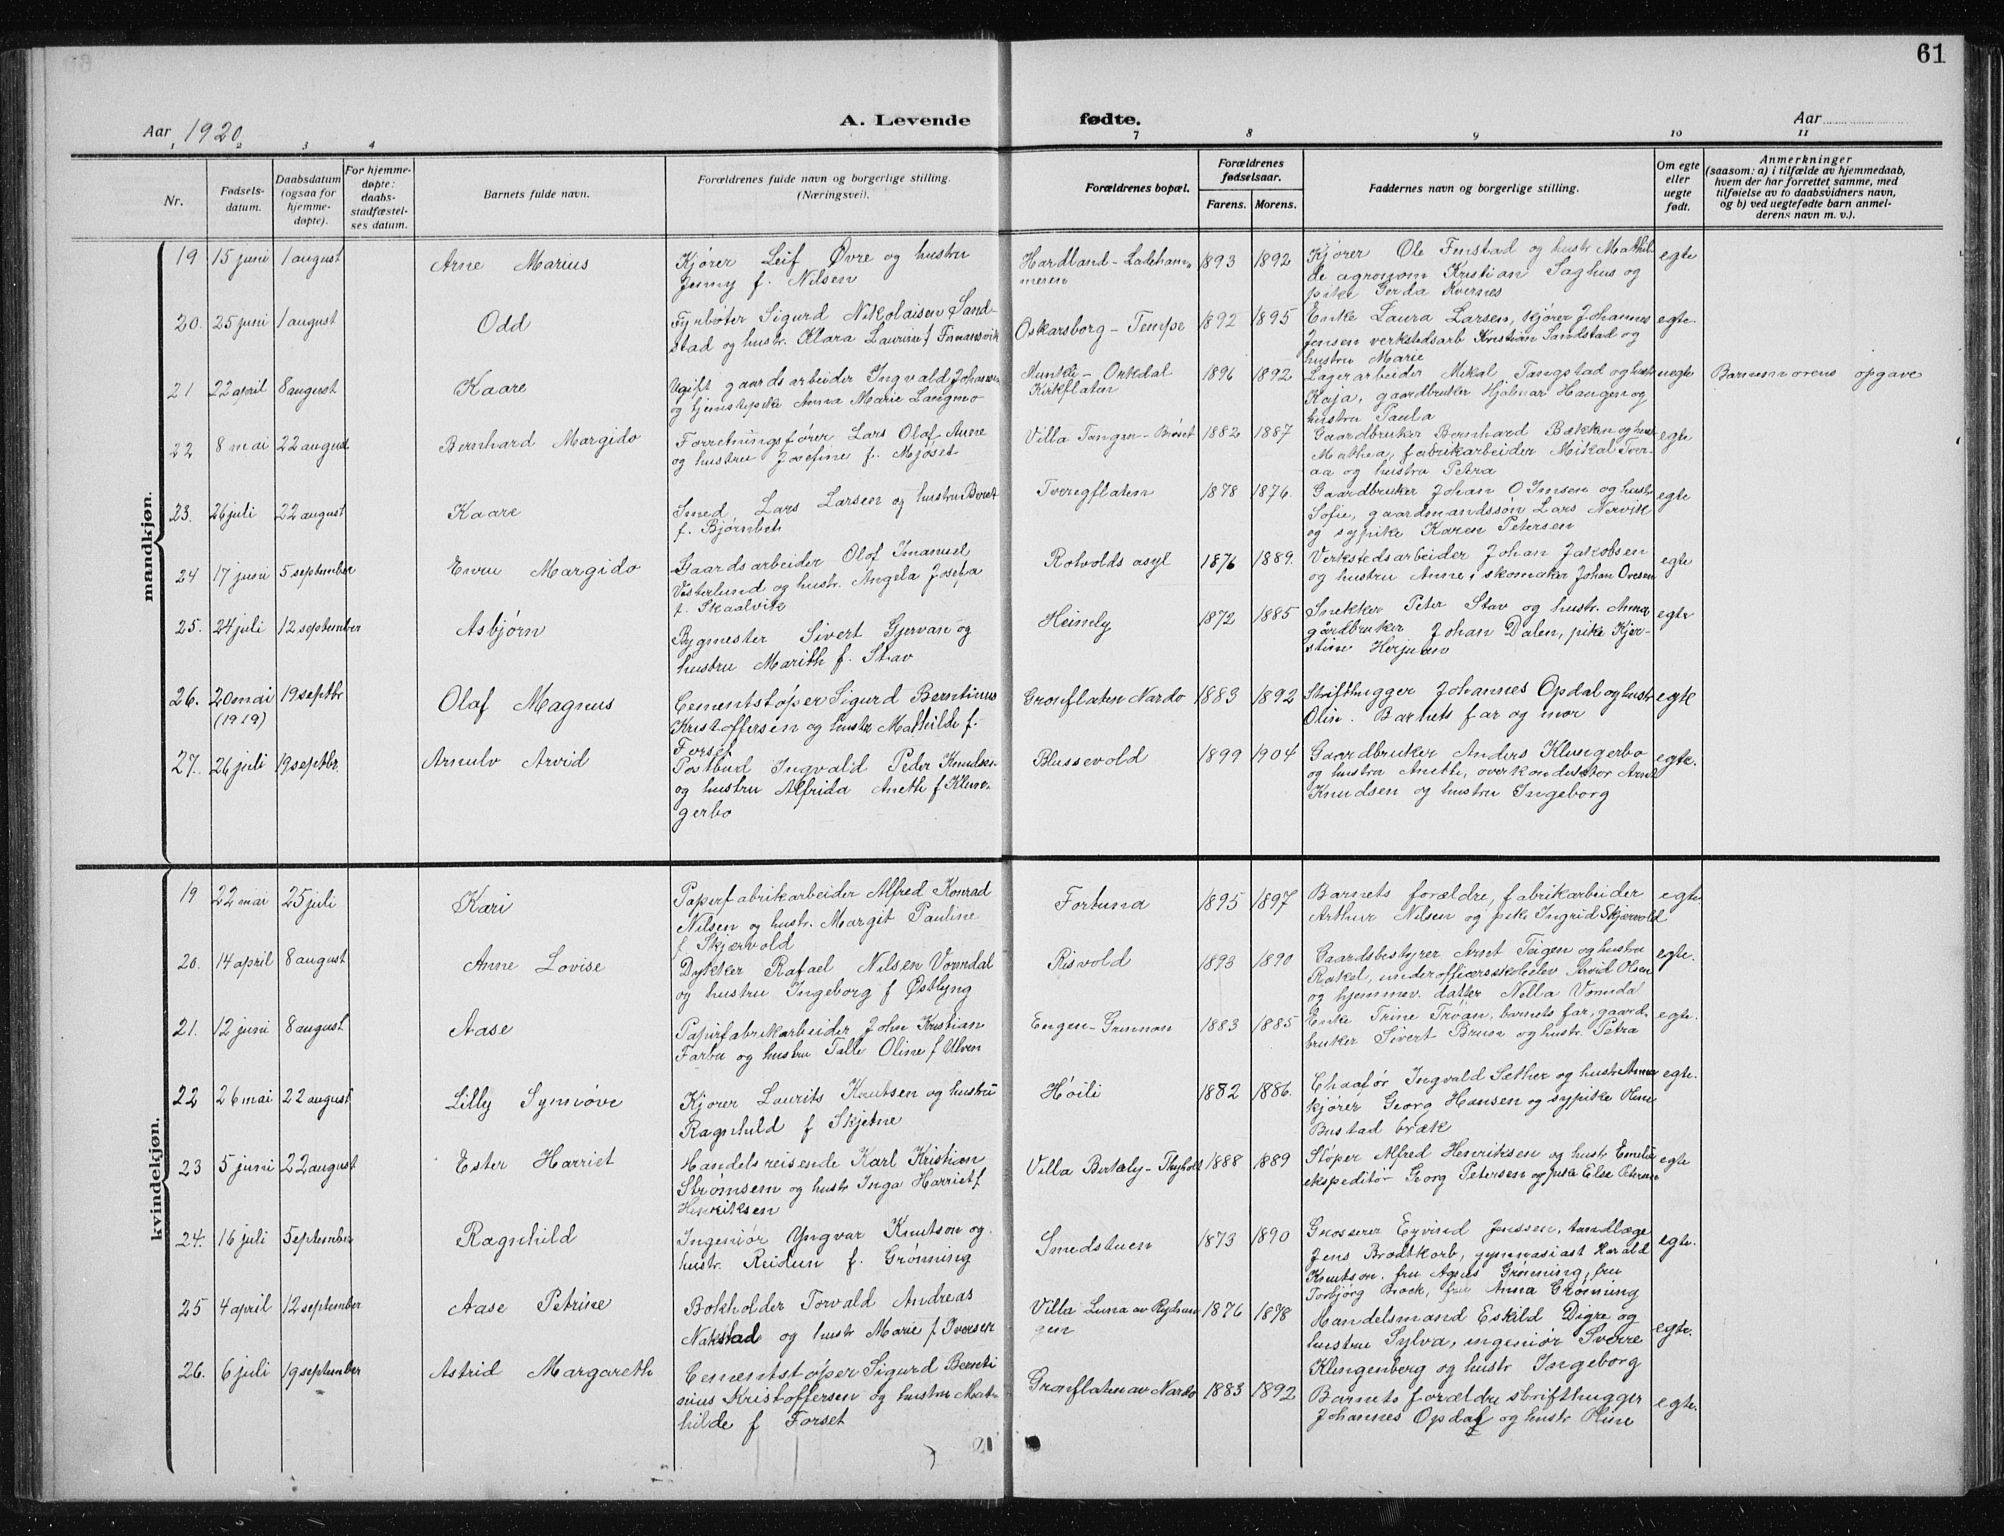 61
Aar 1920
A. Levende fødte.
Aar
1 2 3 4 7 8 9 10 11
Nr.
Fødsels-
datum.
Daabsdatum
(ogsaa for
hjemme-
døpte).
For hjemme-
døpte:
daabs-
stadfæstel-
ses datum.
Barnets fulde navn.
Forældrenes fulde navn og borgerlige stilling.
(Næringsvei).
Forældrenes bopæl.
Forældrenes
fødselsaar.
Farens. Morens.
Faddernes navn og borgerlige stilling.
Om egte
eller
uegte
født.
Anmerkninger
(saasom: a) i tilfælde av hjemmedaab,
hvem der har forrettet samme, med
tilføielse av to daabsvidners navn,
og b) ved uegtefødte barn anmel-
derens navn m. v.).
mandkjøn.
19 15 juni 1 august Arne Marius
Kjører Leif Øvre og hustru
Jenny f. Nilsen
Hardland - Ladeham-
meren
1893 1892
Kjører Ole Fenstad og hustr Mathil
de agronom Kristian Saghus og
pike Gerda Kvernes
egte
20. 25 juni 1 august Odd
Fyrbøter Sigurd Nikolaisen Sand-
stad og hustr. Klara Laurine f
Oskarsborg - Tempe
1892 1895
Enke Laura Larsen, kjører Johannes
Jensen verkstedsarb Kristian Sandstad og
hustru Marie
egte.
21 22 april 8 august Kaare
Ugift gaardsarbeider Ingvald Johansen
og tjenstepike Anna Marie Langmo
Munkli - Orkedal
Kirkflaten
1896 1892
Lagerarbeider Mikal Tangstad og hustr
Kaja, gaardbruker Hjalmar Haugen og
hustru Paula
uegte
Barnemorens opgave
22 8 mai 22 august Bernhard Margido
Forretningsfører Lars Olaf Aune
og hustru Josefine f. Mjøset
Villa Tangen - Brøset
1882 1887
Gaardbruker Bernhard Bakken og hustr
Mathea, fabrikarbeider Mikal Tver-
aa og hustru Petra
egte
23. 26 juli 22 august Kaare
Smed Lars Larsen og hustru Beret
f. Bjørnbet
Tveregflaten
1878 1876.
Gaardbruker Johan O Imsen og hustr
Sofie, gaardmandssøn Lars Nervik
og sypike Karen Petersen
egte
24 17 juni 5 september Margido
Gaardsarbeider Olaf Imanuel
Vesterlund og hustr. Angela Josefa
f. Skaalvik
Rotvolds asyl
1876 1889.
Verkstedsarbeider Johan Jakobsen
og hustru Anne, skomaker Johan Øvesen
egte
25. 24 juli 12 september Asbjørn
Bygmester Sivert Gjervan og
hustru Marith f. Stav
Heimly
1872 1885
Snekker Peter Stav og hustr. Anna
gårdbruker Johan Dalen, pike Kjer-
stine
egte
26. 20 mai 19 septbr
(1919)
Olaf Magnus
Cementstøper Sigurd Berntinus
Kristoffersen og hustr Mathilde f.
Forset
Grønflaten Nardo
1883 1892
Skrifthugger Johannes Opdal og hustr
Olin. Barnets far og mor
egte
27. 26 juli 19 septbr. Arnulv Arvid
Postbud Ingvald Peder Knudsen
og hustru Alfrida Aneth f Klun-
gerbo
Blussevold
1899 1904
Gaardbruker Anders Klungerbo
og hustru Aneth, overkonduktør Arnt
Knudsen og hustru Ingeborg
egte.
kvindekjøn.
19 22 mai 25 juli Kari
Papirfabrikarbeider Alfred Konrad
Nilsen og hustr. Margit Pauline
f Skjærvold
Fortuna
1895 1897
Barnets forældre, fabrikarbeider
Arthur Nilsen og pike Ingrid Skjærvold
egte
20. 14 april 8 august Anne Lovise
Dykker Rafael Nilsen Vorndal
og hustru Ingeborg f Østlyng
Risvold
1893 1890
Gaardsbestyrer Arnt Teigen og hustru
Rakel, underofficersskoleelev Arvid Olsen
og hjemmev. datter Nella Vorndal
egte.
21. 12 juni 8 august Aase
Papirfabrikarbeider John Kristian
Farbu og hustru Talle Oline f Ulven
Engen - Grunnan
1883 1885
Enke Trine Troan, barnets far, gaard-
bruker Sivert Bruen og hustr. Petra
egte.
22 26 mai 22 august Lilly Synnøve
Kjører Laurits Knutsen og hustru
Ragnhild f Skjetne
Høili
1882 1886.
Chaafør Ingvald Sether og hustr Anna
kjører Georg Hansen og sypike Oline
Bustad bræk
egte.
23 5 juni 22 august Ester Harriet
Handelsreisende Karl Kristian
Strømsem og hustr Inga Harriet f
Henriksen
Villa Bertely - Thyholt
1888 1889
Støper Alfred Henriksen og hustr Emelie
ekspeditør Georg Petersen og pike Else Petersen
egte
24. 16 juli 5 september Ragnhild
Ingeniør Yngvar Knutson og
hustr. Reidun f. Grønning
Smedstuen
1873 1890
Grosserer Eyvind Jenssen, tandlæge
Jens Brodtkorb, gymnasiast Harald
Knutson. fru Agnes Grønning, fru
Torbjørg Brock, fru Anna Grønning
egte.
25 4 april 12 september Aase Petrine
Bokholder Torvald Andreas
Nakstad og hustr Marie f Iversen
Villa Luna av Rydnin
gen
1876 1878
Handelsmand Eskild Digre og
hustru Sylva, ingeniør Sverre
Klingenberg og hustr Ingeborg
egte.
26. 6 juli 19 september Astrid Margareth
Cementstøper Sigurd Bernti
nius Kristoffersen og hustru Mat-
hilde f Forset
Grønflaten av Nardo
1883 1892
Barnets forældre skrifthugger
Johannes Opdal og hustr Oline
egte.